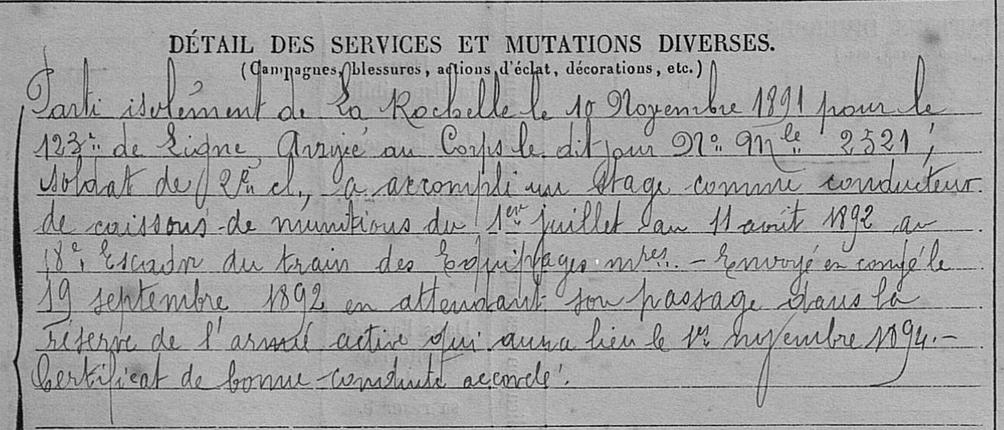 DÉTAIL DES SERVICES ET MUTATIONS DIVERSES.
(Campagnes, blessures, actions d'éclat, décorations, etc.)
Parti isolément de La Rochelle le 10 Novembre 1891 pour le
123e de Ligne, Arrivé au Corps le dit jour No Mle 2521,
soldat de 2e cl., a accompli un stage comme conducteur
de caissons de munitions du 1er juillet au 11 août 1892 au
18e Escadn du train des Equipages mres. – Envoyé en congé le
19 septembre 1892 en attendant son passage dans la
réserve de l'armée active qui aura lieu le 1er novembre 1894. –
Certificat de bonne conduite accordé.